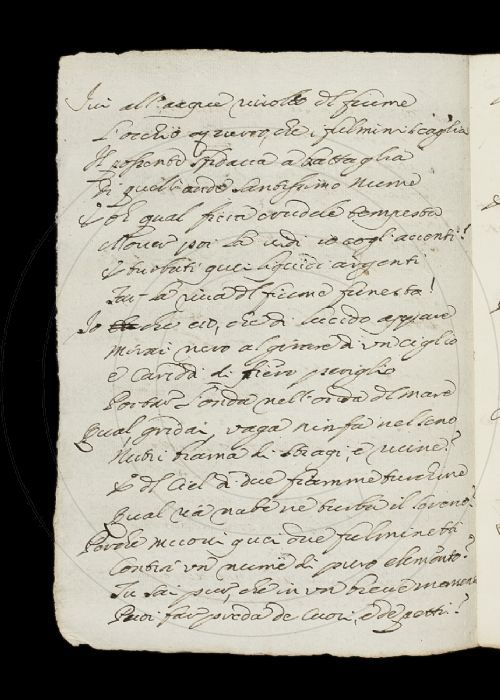 Ivi all'acque rivolto del fiume
L'occhio guerrier, che i fulmini scaglia
Il possente sfidava a battaglia
Di quell'onde santissimo nume
E oh qual fiera crudele tempesta
Mover poi la vidi io cogl'accenti!
E turbati quei liquidi argenti
Far la riva del fiume funesta!
Io che ciò, che di lucido appare
Mirai nero al girare d'un ciglio
E Cariddi di fiero periglio
Portar l'onda nell'onda del mare
Qual gridai, vaga ninfa nel seno
Nutri brama di stragi, e ruine?
E del Ciel di due fiamme turchine
Qual ria nube ne turba il sereno?
Perchè mi covi qua due fulmine
Contra un nume di puro elemento?
Tu sai pur, che in un breve momento
Puoi far preda de cuori, e de petti?